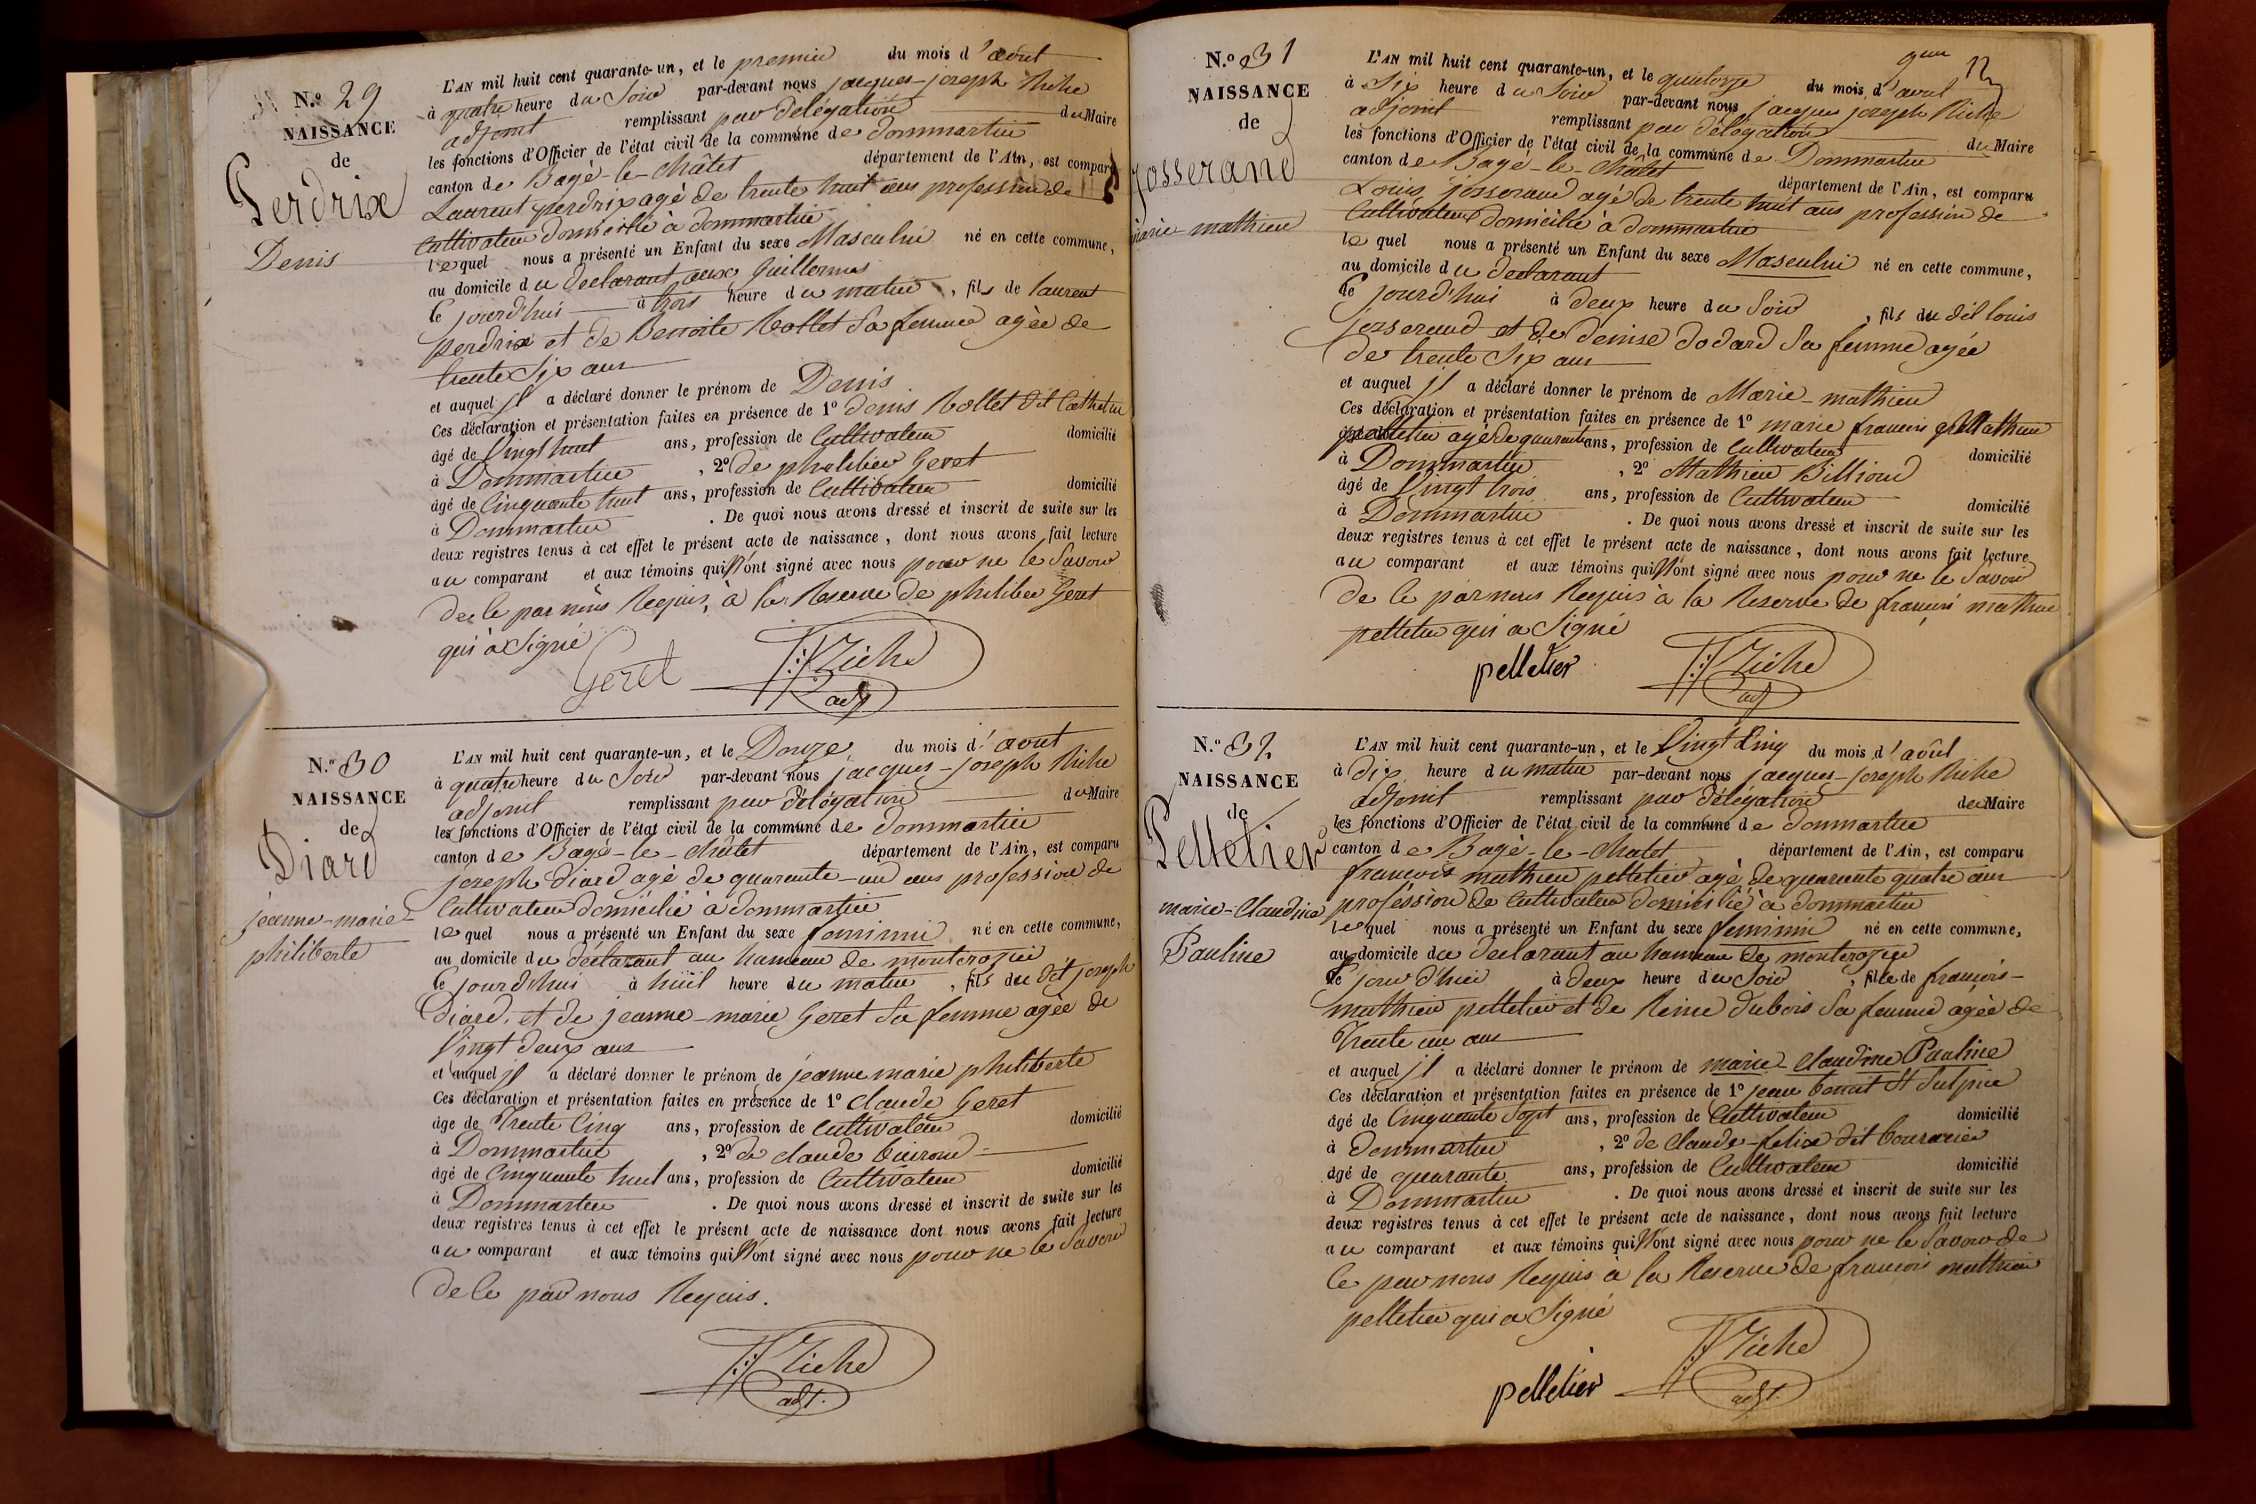 N.º 29
NAISSANCE
de
Perdrix
Denis
L'AN mil huit cent quarante-un, et le premier du mois d'avout
à quatre heure du Soir par-devant nous jacques-joseph Riche
adjoint remplissant par délégation du Maire
les fonctions d'Officier de l'état civil de la commune de dommartin
canton de Bagé-le-Châtel département de l'Ain, est comparu
Laurent perdrix agé de trente huit ans profession de
Cultivateur domicilié à dommartin
lequel nous a présenté un Enfant du sexe Masculin né en cette commune,
au domicile du déclarant aux Guillermes
le jourd'hui à trois heure du matin, fils de laurent
perdrix et de Benoite Rollet Sa femme agée de
trente Six ans
et auquel il a déclaré donner le prénom de Denis
Ces déclaration et présentation faites en présence de 1º denis Rollet dit
âgé de Vingt huit ans, profession de Cultivateur domicilié
à Dommartin, 2º de philibert Geret
âgé de Cinquante huit ans, profession de Cultivateur domicilié
à Dommartin. De quoi nous avons dressé et inscrit de suite sur les
deux registres tenus à cet effet le présent acte de naissance, dont nous avons fait lecture
au comparant et aux témoins qui N'ont signé avec nous pour ne le Savoir
de ce par nous Requis, à la Reserve de philibert Geret
qui à Signé
Geret JJRiche
adj
N.º 30
NAISSANCE
de
Diard
jeanne-marie-
philiberte
L'AN mil huit cent quarante-un, et le Douze du mois d'avout
à quatre heure du Soir par-devant nous jacques-joseph Riche
adjoint remplissant par délégation du Maire
les fonctions d'Officier de l'état civil de la commune de dommartin
canton de Bagé-le-Châtel département de l'Ain, est comparu
joseph Diard agé de quarante-un ans profession de
Cultivateur domicilié à dommartin
lequel nous a présenté un Enfant du sexe feminin né en cette commune,
au domicile du déclarant au hameau de monterozin
le jourd'hui à huit heure du matin, fils du dit joseph
Diard, et de jeanne-marie Geret Sa femme agée de
Vingt deux ans
et auquel il a déclaré donner le prénom de jeanne marie philiberte
Ces déclaration et présentation faites en présence de 1º claude Geret
âge de Trente Cinq ans, profession de Cultivateur domicilié
à Dommartin, 2º de claude
âgé de Cinquante huit ans, profession de Cultivateur domicilié
à Dommartin. De quoi nous avons dressé et inscrit de suite sur les
deux registres tenus à cet effet le présent acte de naissance dont nous avons fait lecture
au comparant et aux témoins qui N'ont signé avec nous pour ne le Savoir
de ce par nous Requis.
JJRiche
adjt.
12
N.º 31
NAISSANCE
de
josserand
marie-mathieu
L'AN mil huit cent quarante-un, et le quatorze du mois d'avout
à Six heure du Soir par-devant nous jacques joseph Riche
adjoint remplissant par délégation du Maire
les fonctions d'Officier de l'état civil de la commune de Dommartin
canton de Bagé-le-Châtel département de l'Ain, est comparu
Louis josserand agé de trente huit ans profession de
Cultivateur domicilié à dommartin
lequel nous a présenté un Enfant du sexe Masculin né en cette commune,
au domicile du déclarant
le jourd'hui à deux heure du Soir, fils du dit louis
josserand et de denise dodard Sa femme agée
de trente Six ans
et auquel il a déclaré donner le prénom de Marie-mathieu
Ces déclaration et présentation faites en présence de 1º marie francois Mathieu
pelletier agé de quarante ans, profession de Cultivateur domicilié
à Dommartin, 2º Mathieu Billioud
âgé de Vingt trois ans, profession de Cultivateur domicilié
à Dommartin. De quoi nous avons dressé et inscrit de suite sur les
deux registres tenus à cet effet le présent acte de naissance, dont nous avons fait lecture
au comparant et aux témoins qui N'ont signé avec nous pour ne le Savoir
de ce par nous Requis à la Reserve de francois mathieu
pelletier qui a Signé
pelletier JJRiche
adj
N.º 32
NAISSANCE
de
Pelletier
marie-Claudine
Pauline
L'AN mil huit cent quarante-un, et le Vingt Cinq du mois d'août
à dix heure du matin par-devant nous jacques-joseph Riche
adjoint remplissant par délégation du Maire
les fonctions d'Officier de l'état civil de la commune de dommartin
canton de Bagé-le-Chatel département de l'Ain, est comparu
francois mathieu pelletier agé de quarante quatre ans
profession de Cultivateur domicilié à dommartin
lequel nous a présenté un Enfant du sexe feminin né en cette commune,
au domicile du declarant au hameau de monterozin
le jour d'hui à deux heure du Soir, fille de francois-
mathieu pelletier et de Reine dubois Sa femme agée de
Trente un ans
et auquel il a déclaré donner le prénom de marie-Claudine Pauline
Ces déclaration et présentation faites en présence de 1º jean St Sulpice
âgé de Cinquante Sept ans, profession de Cultivateur domicilié
à dommartin, 2º de claude-felix dit
âgé de quarante ans, profession de Cultivateur domicilié
à Dommartin. De quoi nous avons dressé et inscrit de suite sur les
deux registres tenus à cet effet le présent acte de naissance, dont nous avons fait lecture
au comparant et aux témoins qui N'ont signé avec nous pour ne le Savoir de
ce par nous Requis à la Reserve de francois mathieu
pelletier qui a Signé
pelletier JJRiche
adjt.